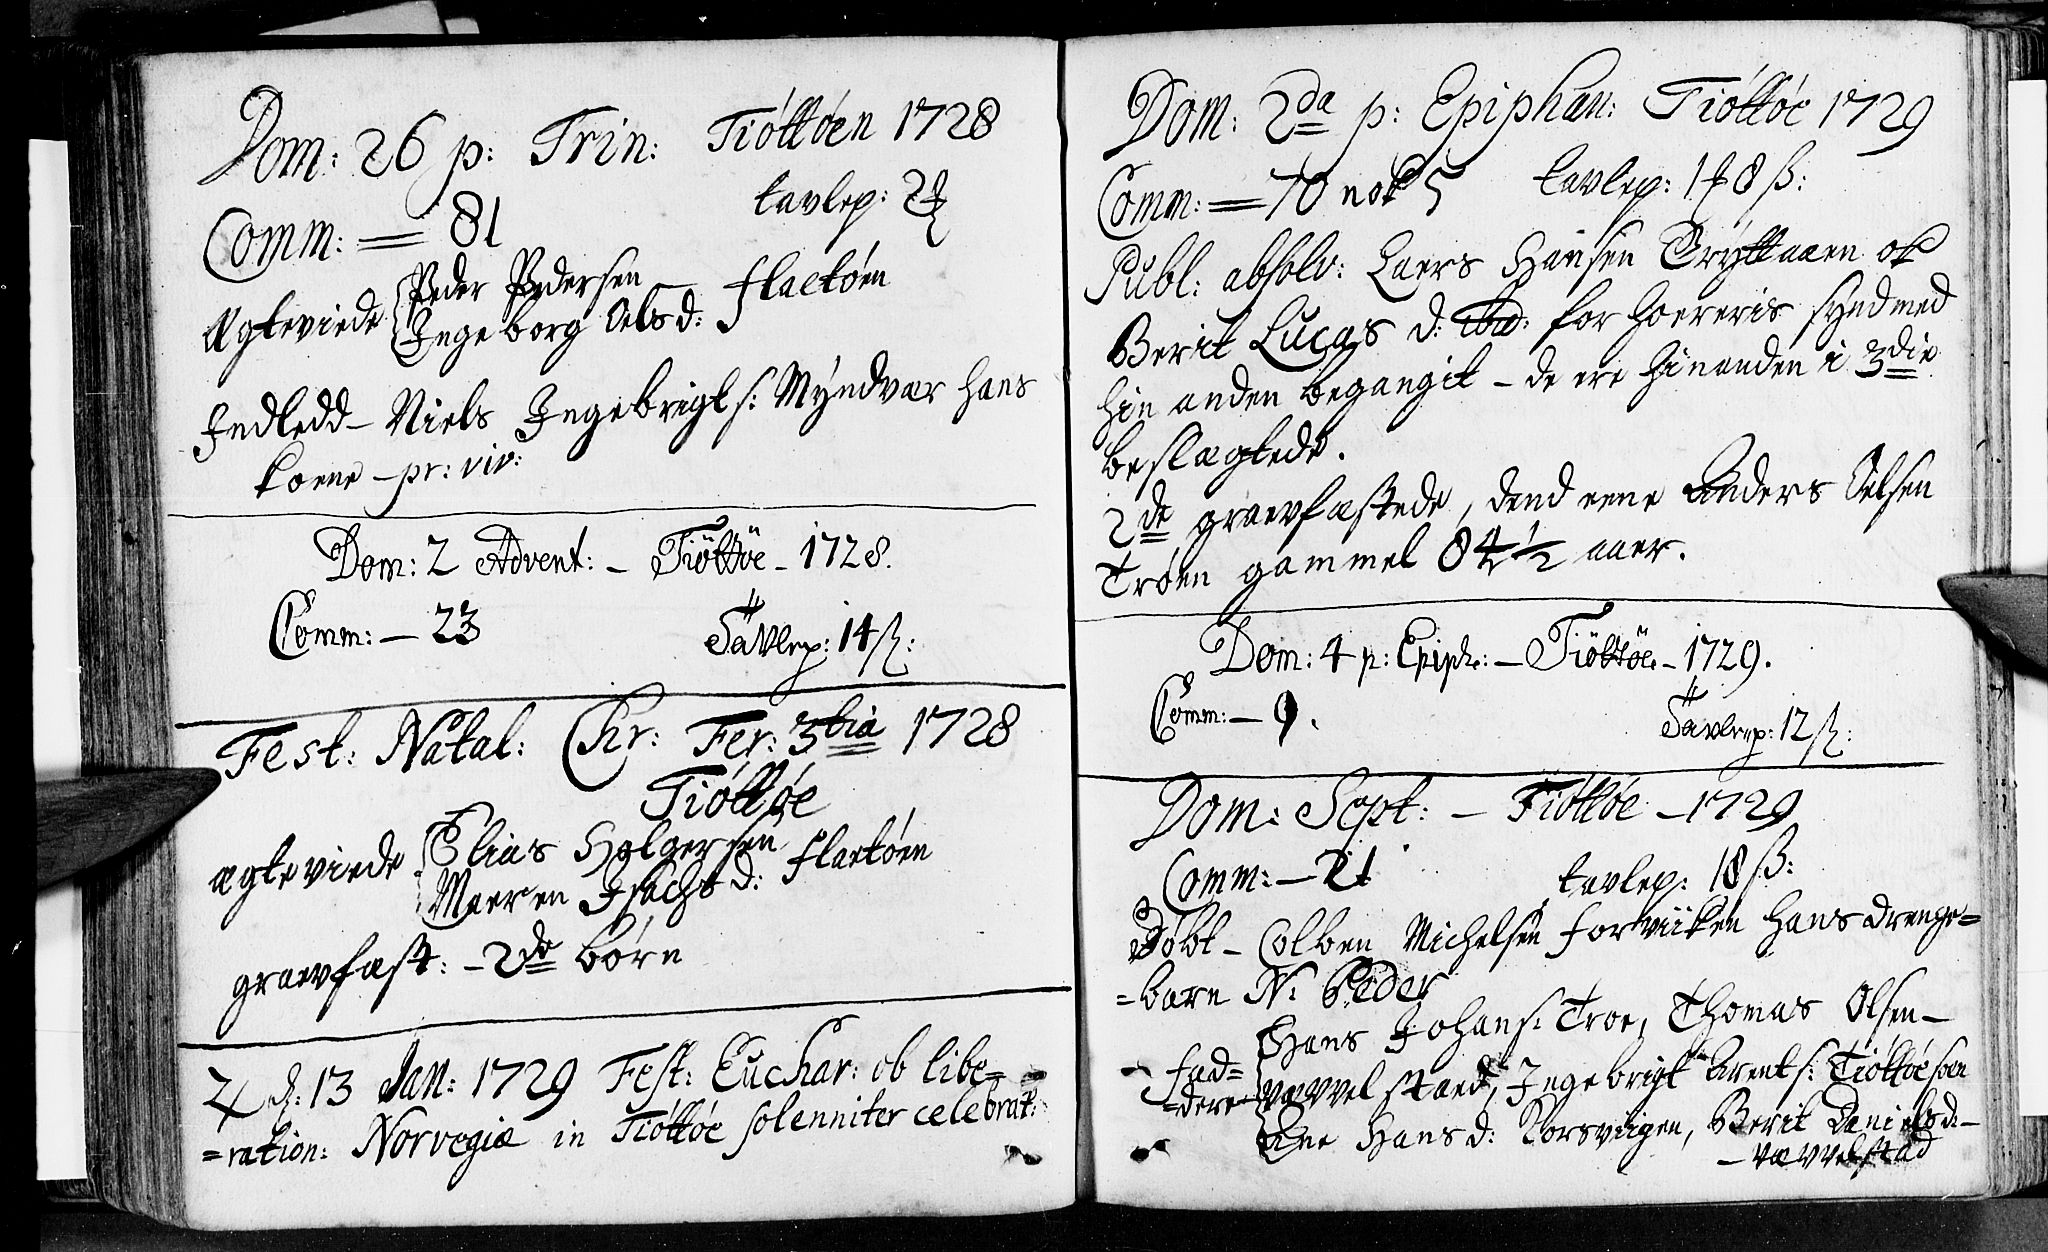 Dom: 26 p: Trin: Tiöttöen 1728
Comm: = 81 tavlep:
Ægteviede Peder Pedersen
Ingeborg Oels d: flaetöen
Indledd - Niels Ingebrigts: Mÿndvær hans
koene - pr: viv:
Dom: 2 Advent: - Tiöttöe - 1728.
Comm: - 23 Tavlep: 14 ß:
Fest: Natal: Chr: Fer: 3tia 1728
Tiöttöe
ægteviede Elias Holgersen
Maeren Isachs d: flaetöen
graevfæst: - 2de börn
d: 13 Jan: 1729 Fest: Euchar: ob libe=
=ration: Norvegiæ in Tiöttöe solenniter celebrat:
Dom: 2da p: Epiphan: Tiöttöe 1729
Comm: = 70 nok 5 tavlep: 1 8 ß:
Publ: absolv: Laers Hansen Trÿttaaen ok
Berit Lucas d: ibid: for hoereris sÿnd med
hin anden begangit - de ere hinanden i 3die
beslægtede.
2de graevfæstede, dend eene Anders Oelsen
Tröen gammel 84½ aaer.
Dom: 4 p: Epiph: - Tiöttöe - 1729.
Comm: - 9. Tavlep: 12 ß:
Dom: Sept: - Tiöttöe - 1729
Comm: - 21 tavlep: 18 ß:
Döbt - Colben Michelsen forviiken Hans drenge=
=barn N: Peder
Hans Johans: Troe, Thomas Olsen -
fad= vævvelstaed, Ingebrigt Arents: Tiöttöe
=dere Ane Hans d: Korsviigen, Berit Daniels d: -
- vævvelstad